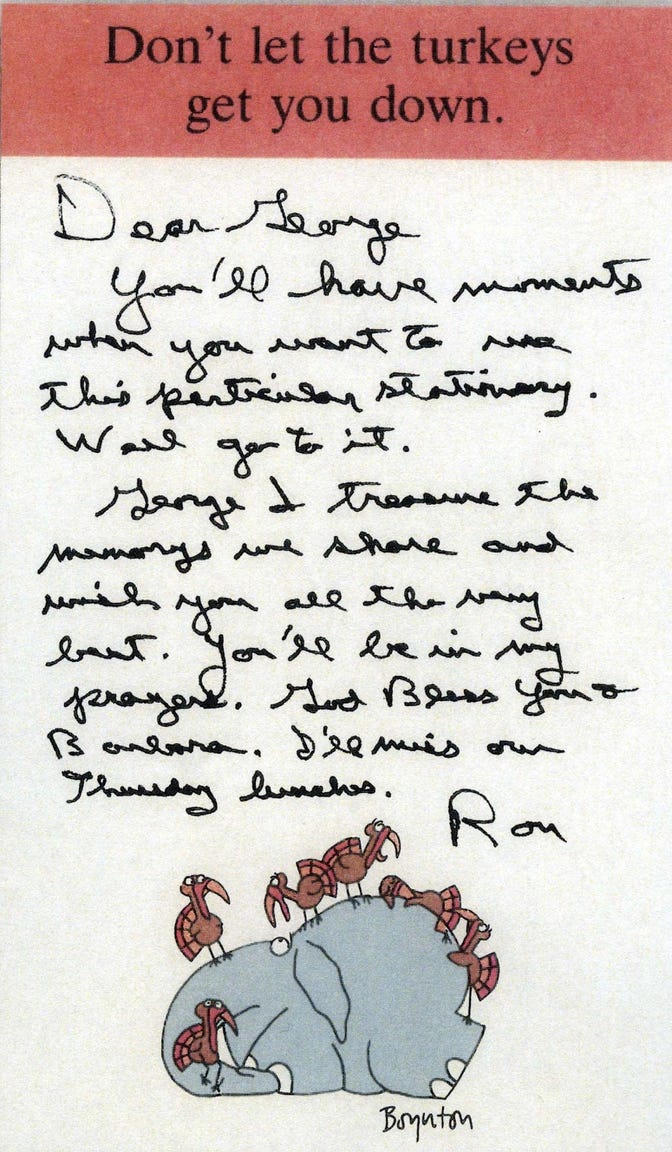 Don't let the turkeys
get you down.
Dear George
You'll have moments
when you want to use
this particular stationary.
Well go to it.
George I treasure the
memorys we share and
wish you all the very
best. You'll be in my
prayers. God Bless You &
Barbara. I'll miss our
Thursday lunches.
Ron
Boynton